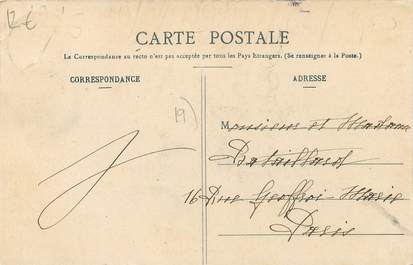 12€
CARTE POSTALE
La Correspondance au recto n'est pas acceptée par tous les Pays étrangers. (Se renseigner à la Poste.)
CORRESPONDANCE
ADRESSE
19)
Monsieur et Madame
Bataillard
16 Rue Geoffroi-Marie
Paris